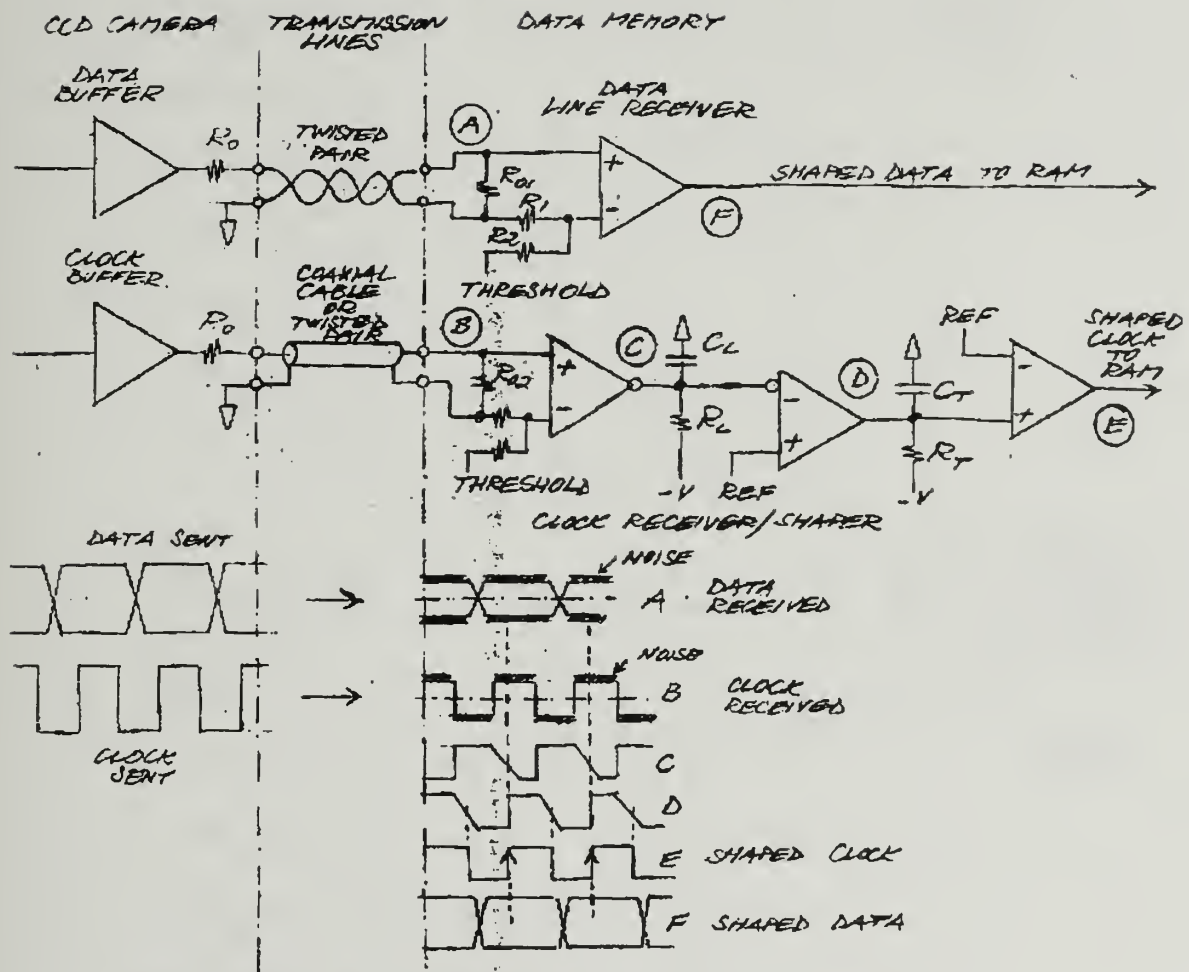 CCD CAMERA
TRANSMISSION
LINES
DATA MEMORY
DATA
BUFFER
R0
TWISTED
PAIR
A
R01
R1
R2
DATA
LINE RECEIVER
+
-
F
SHAPED DATA TO RAM
CLOCK
BUFFER
R0
COAXIAL
CABLE
OR
TWISTED
PAIR
THRESHOLD
B
R02
+
-
THRESHOLD
C
CL
RL
-V
-
+
REF
D
CT
RT
-V
REF
-
+
SHAPED
CLOCK
TO
RAM
E
CLOCK RECEIVER/SHAPER
DATA SENT
NOISE
A DATA
RECEIVED
NOISE
B CLOCK
RECEIVED
CLOCK
SENT
C
D
E SHAPED CLOCK
F SHAPED DATA